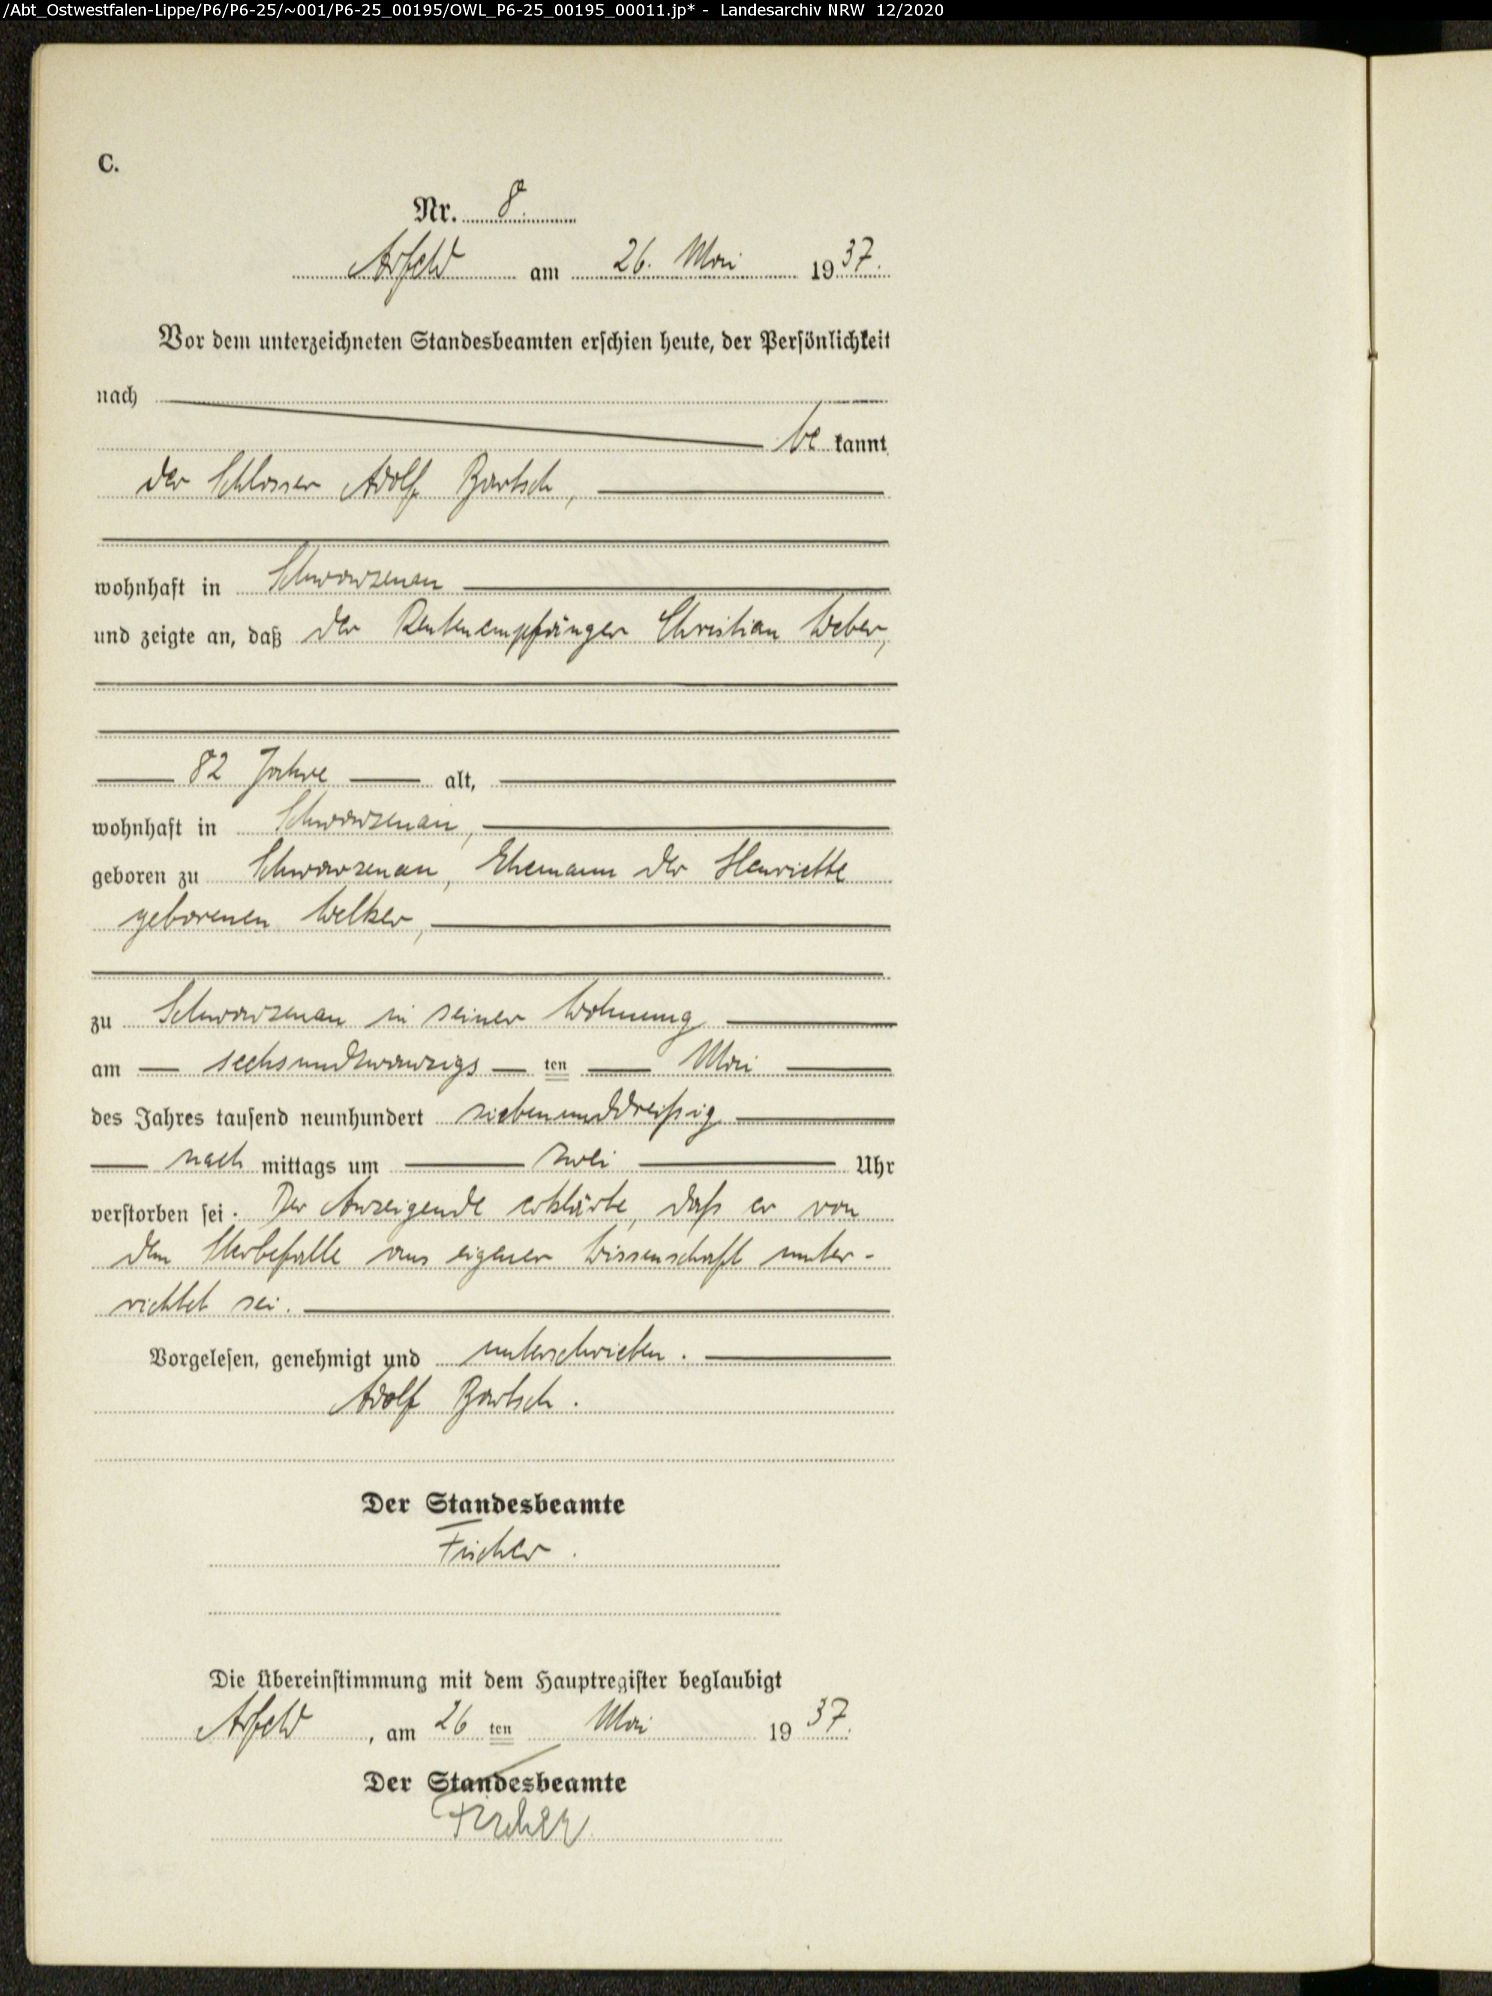 /Abt_Ostwestfalen-Lippe/P6/P6-25/~001/P6-25_00195/OWL_P6-25_00195_00011.jp* - Landesarchiv NRW 12/2020
C.
Nr. 8.
Arfeld am 26. Mai 1937.
Vor dem unterzeichneten Standesbeamten erschien heute, der Persönlichkeit
nach
be kannt
der Schlosser Adolf Bartsch,
wohnhaft in Schwarzenau
und zeigte an, daß der Rentenempfänger Christian Weber,
82 Jahre alt,
wohnhaft in Schwarzenau,
geboren zu Schwarzenau, Ehemann der Henriette
geborenen Welker,
zu Schwarzenau in seiner Wohnung
am sechsundzwanzigs ten Mai
des Jahres tausend neunhundert siebenunddreißig
nach mittags um zwei Uhr
verstorben sei. Der Anzeigende erklärte, daß er von
dem Sterbefalle aus eigener Wissenschaft unter-
richtet sei.
Vorgelesen, genehmigt und unterschrieben.
Adolf Bartsch.
Der Standesbeamte
Fischer.
Die Übereinstimmung mit dem Hauptregister beglaubigt
Arfeld, am 26 ten Mai 1937.
Der Standesbeamte
Fischer